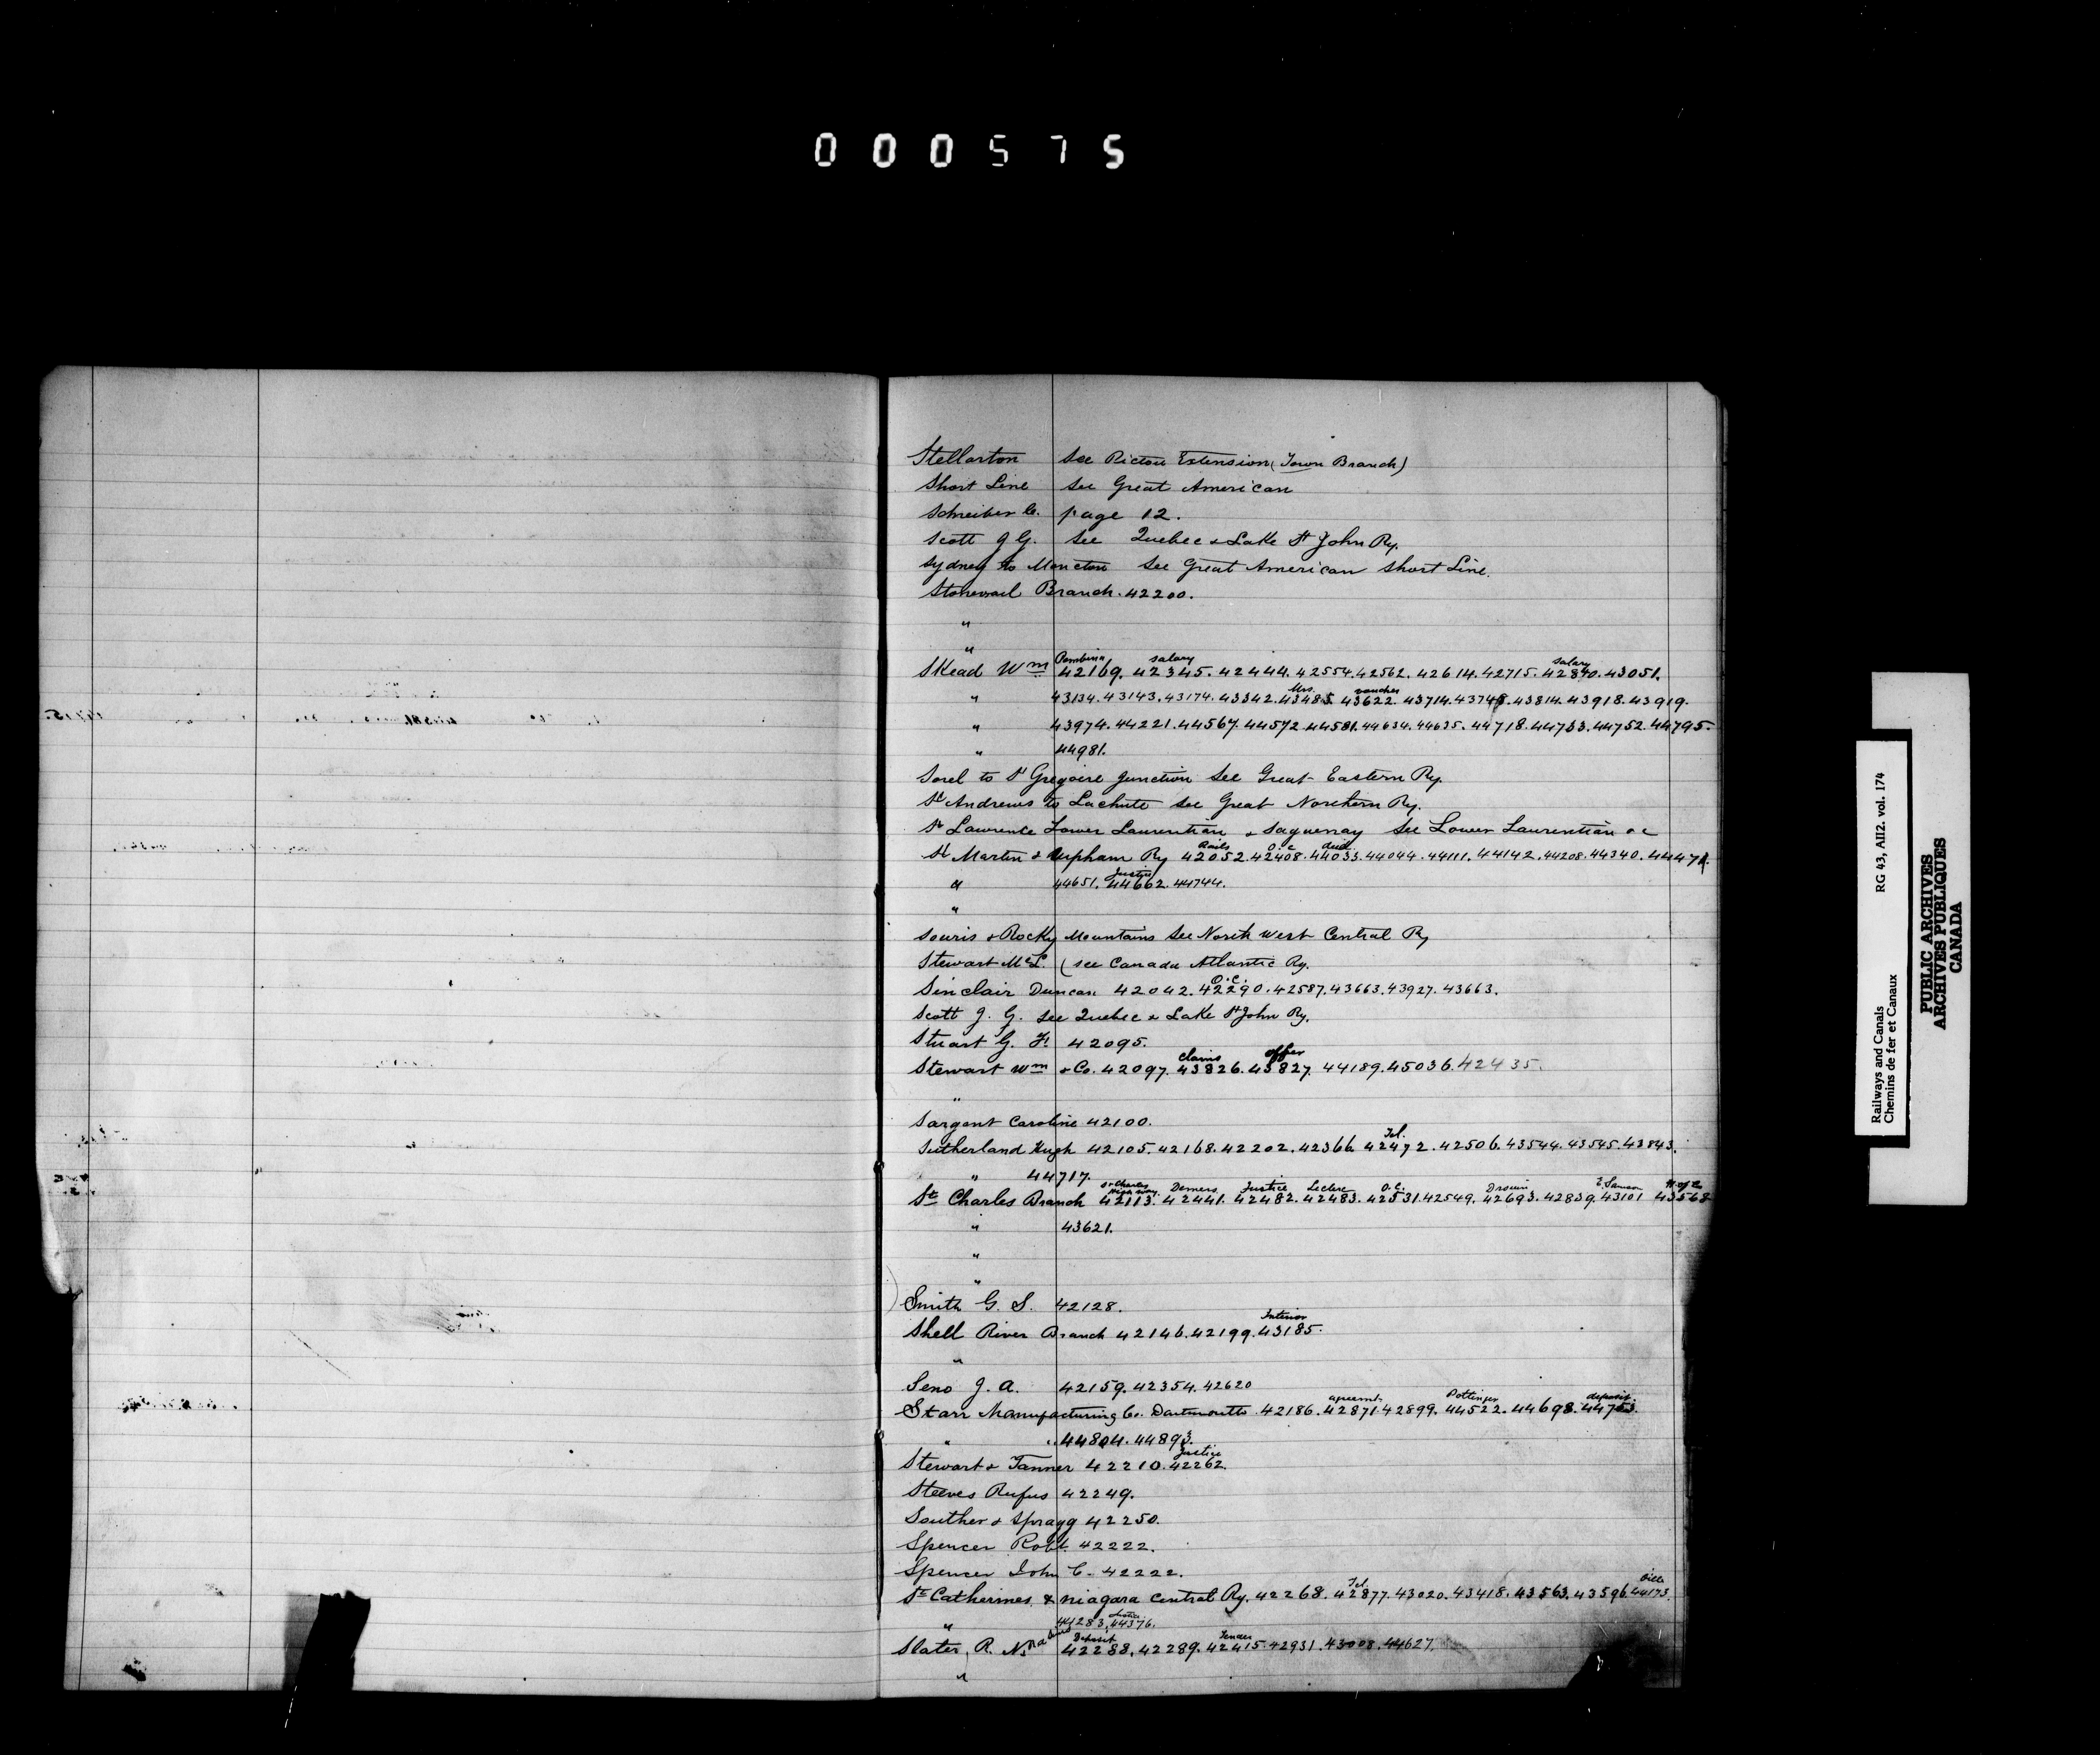 000575
Stellarton See Pictou Extension (Town Branch)
Short Line See Great American
Schreiber C. page 12.
Scott J G. See Quebec & Lake St John Ry.
Sydney to Moncton See Great American Short Line.
Stonewall Branch. 42200.
"
"
Pembina salary salary
Skead Wm 42169. 42345. 42444. 42554. 42562. 42614. 42715. 42840. 43051.
Mrs. voucher
" 43134. 43143. 43174. 43342. 43485. 43622. 43714. 43748. 43814. 43918. 43919.
" 43974. 44221. 44567. 44572. 44581. 44634. 44635. 44718. 44733. 44752. 44795.
" 44981.
Sorel to St Gregoire Junction See Great Eastern Ry.
St Andrews to Lachute see Great Northern Ry.
St Lawrence Lower Laurentian & Saguenay See Lower Laurentian &c
Rails O.C.
St Martin & Upham Ry 42052. 42408. 44033. 44044. 44111. 44142. 44208. 44340. 44471.
Justice
" 44651. 44662. 44744.
"
Souris & Rocky Mountains See North West Central Ry
Stewart McL. (see Canada Atlantic Ry.
O.C.
Sinclair Duncan 42042. 42290. 42587. 43663. 43927. 43663.
Scott J. G. see Quebec & Lake St John Ry.
Stuart G. 42095.
claims offer
Stewart Wm & Co. 42097. 43826. 43827. 44189. 45036. 42435.
"
Sargent Caroline 42100.
Tel.
Sutherland Hugh 42105. 42168. 42202. 42366. 42472. 42506. 43544. 43545. 43843.
" 44717.
St Charles High way. Demers Justice Leclerc O.C. Drouin E. Samson H of C
St Charles Branch 42113. 42441. 42482. 42483. 42531. 42549. 42693. 42839. 43101 43568
" 43621.
"
"
Smith G. S. 42128.
Interior
Shell River Branch 42146. 42199. 43185.
"
Seno J. A. 42159. 42354. 42620
agreemt. Pottinger deposit.
Starr Manufacturing Co. Dartmouth 42186. 42871. 42899. 44522. 44698. 44753.
" " 44804. 44893.
Justice
Stewart & Tanner 42210. 42262.
Steeves Rufus 42249.
Souther & Spragg 42250.
Spencer Robt. 42222.
Spencer John C. 42222.
Tel. Bill
St Catherines & Niagara Central Ry. 42268. 42877. 43020. 43418. 43563. 43596. 44173.
" 44283. 44376.
Deposit Tender
Slater, R. N. 42288. 42289. 42415. 42931. 43008. 44627.
"
Railways and Canals RG 43, AII2. vol. 174
Chemins de fer et Canaux
PUBLIC ARCHIVES
ARCHIVES PUBLIQUES
CANADA